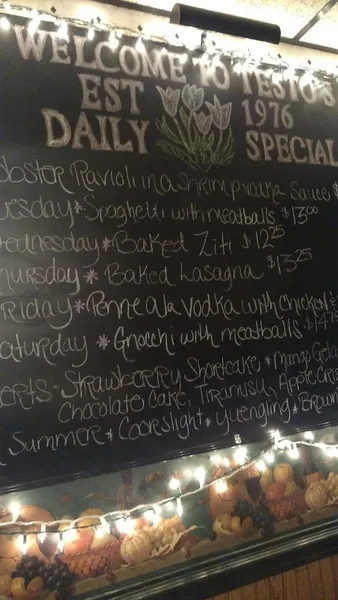 WELCOME TO TESTO'S
EST 1976
DAILY SPECIAL
lobster Ravioli in a shrimp vodka sauce $
uesday * Spaghetti with meatballs $13.00
ednesday * Baked Ziti $12.25
hursday * Baked Lasagna $13.25
riday * Penne ala vodka with chicken $
aturday * Gnocchi with meatballs $14.75
erts - Strawberry Shortcake * Mango Gela
Chocolate Cake, Tiramisu, Apple Cris
Summer * Coorslight * Yuengling * Brown